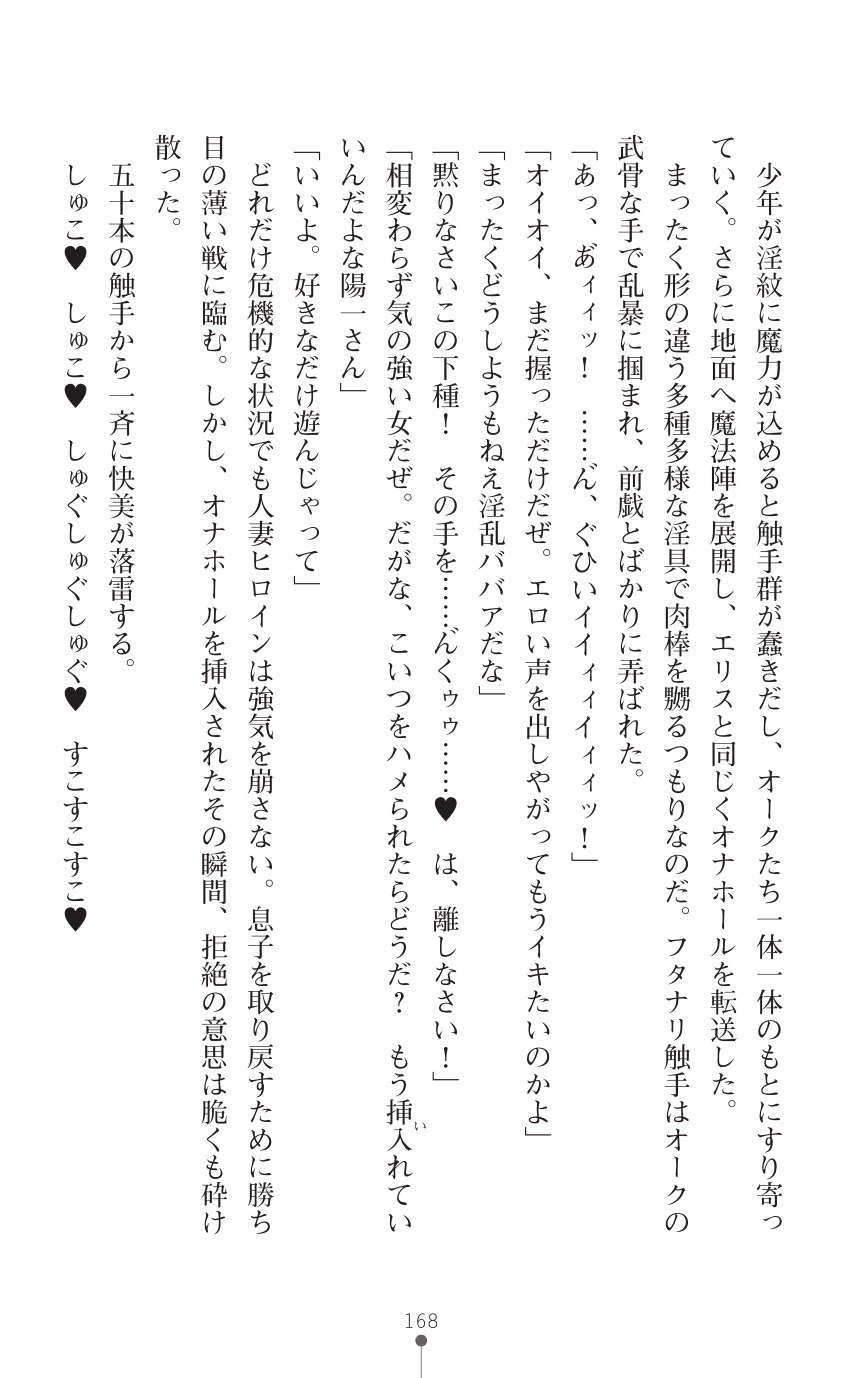 少年が淫紋に魔力が込めると触手群が蠢きだし、オークたち一体一体のもとにすり寄っ
ていく。さらに地面へ魔法陣を展開し、エリスと同じくオナホールを転送した。
まったく形の違う多種多様な淫具で肉棒を嬲るつもりなのだ。フタナリ触手はオークの
武骨な手で乱暴に掴まれ、前戯とばかりに弄ばれた。
「あっ、あ゙ィィッ！　……ん゙、ぐひいイイィィイィィッ！」
「オイオイ、まだ握っただけだぜ。エロい声を出しやがってもうイキたいのかよ」
「まったくどうしようもねえ淫乱ババアだな」
「黙りなさいこの下種！　その手を……ん゙くゥゥ……♥　は、離しなさい！」
「相変わらず気の強い女だぜ。だがな、こいつをハメられたらどうだ？　もう挿入れてい
いんだよな陽一さん」
「いいよ。好きなだけ遊んじゃって」
どれだけ危機的な状況でも人妻ヒロインは強気を崩さない。息子を取り戻すために勝ち
目の薄い戦に臨む。しかし、オナホールを挿入されたその瞬間、拒絶の意思は脆くも砕け
散った。
五十本の触手から一斉に快美が落雷する。
しゅこ♥　しゅこ♥　しゅぐしゅぐしゅぐ♥　すこすこすこ♥
い
168